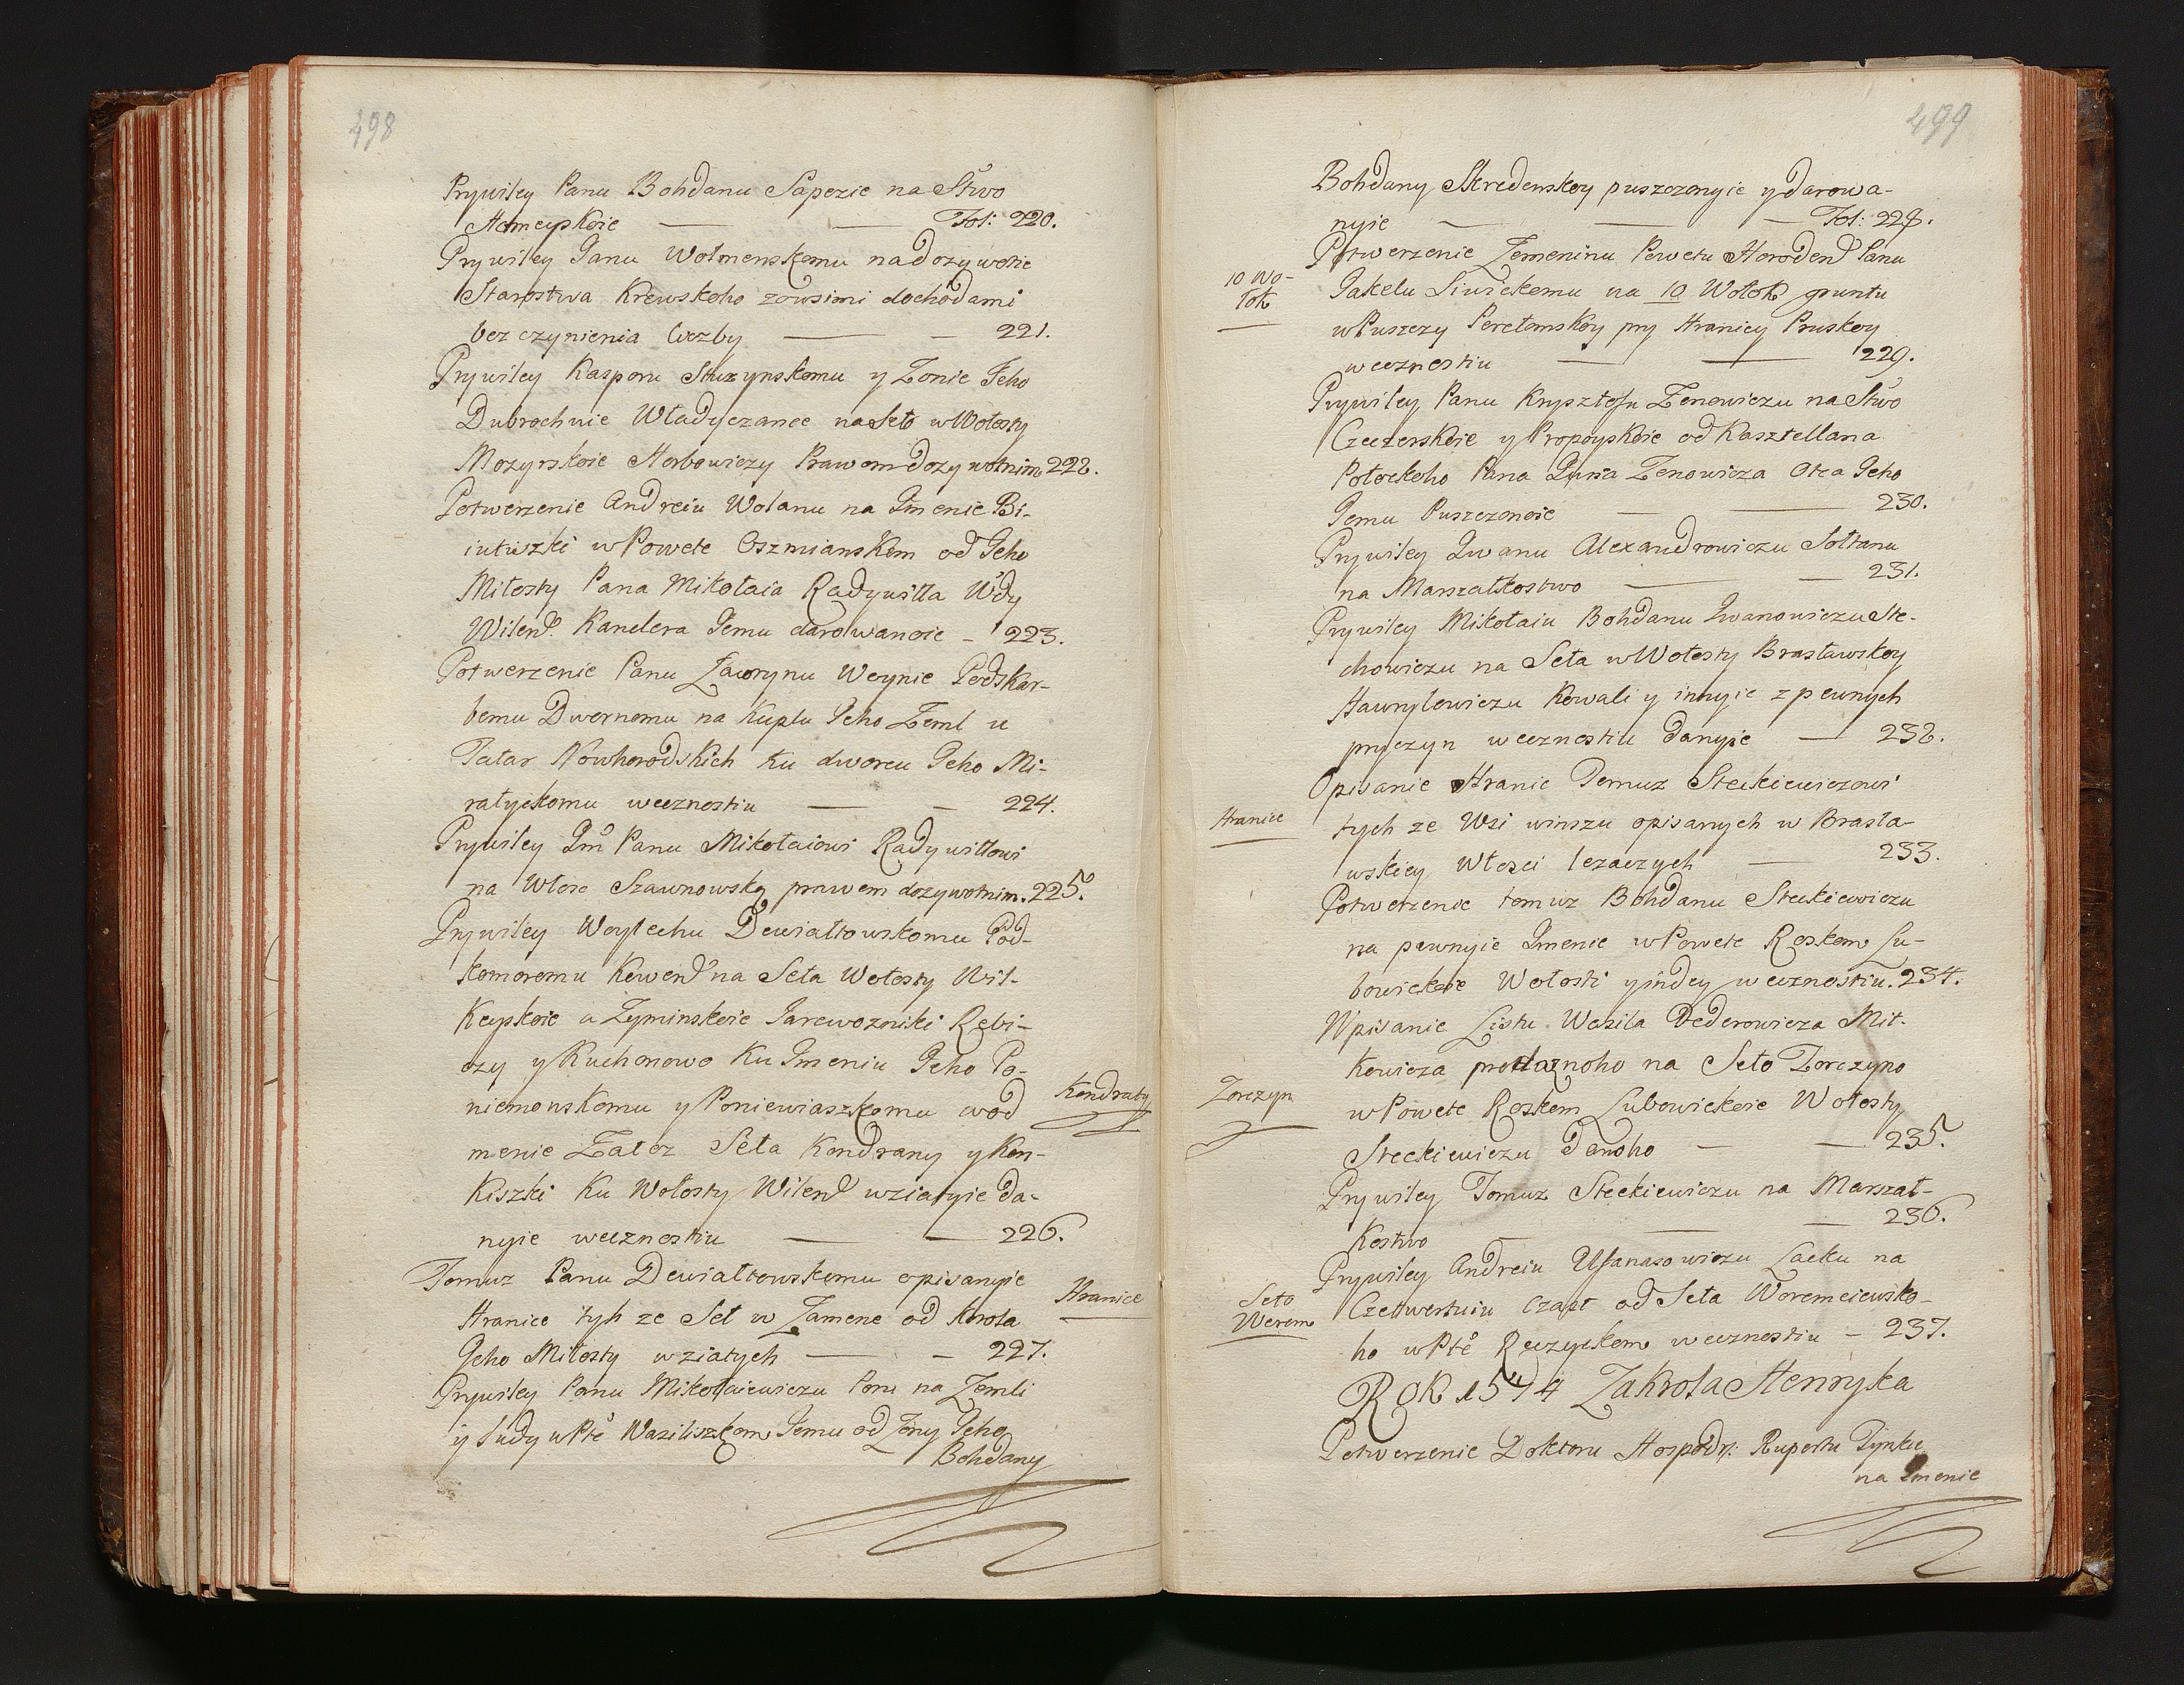 498
Prywiley Panu Bohdanu Sapezie na Stwo
Homeyskoie — — Fol: 220.
Prywiley Panu Wolmenskomu na dozywotie
Starostwa Krewskoho zowsimi dochodami
bez czynienia liczby — — 221.
Prywiley Kasporu Stuzynskomu y Zonie Jeho
Dubrochnie Władyczance na Seło w Wołosty
Mozyrskoie Horbowiczy Prawom dozywotnim 222.
Potwerzenie Andreiu Wolanu na Imenie Bi-
iuciszki w Powete Oszmianskom od Jeho
Miłosty Pana Mikołaia Radywiłła Wdy
Wilen. Kanclera Jemu darowanoie — 223.
Potwerzenie Panu Ławrynu Woynie Podskar-
bemu Dwornomu na Kuplu Jeho Zeml u
Tatar Nowhorodskich ku dworcu Jeho Mi-
ratyckomu wecznostiu — — 224.
Prywiley Im Panu Mikołaiowi Radywiłłowi
na Włosc Szawnowską prawem dozywotnim. 225.
Prywiley Woytechu Dewiałtowskomu Pod-
komoremu Kowen na Seła Wołosty Wil-
keyskoie a Zyminskoie Jarewozniki Rębi-
czy y Kuchonowo Ku Imeniu Jeho Po-
niemonskomu y Poniewiaszkomu w od
Kondraty
menie Za toz Seła Kondrany y Kon-
kiszki Ku Wołosty Wilen wziatyie da-
nyie wecznostiu — — 226.
Tomuz Panu Dewiałtowskomu opisanyie
Hranice
Hranice tyh ze Seł w Zamene od Krola
Jeho Miłosty wziatych — — 227.
Prywiley Panu Mikołaiewiczu Paru na Zemli
y ludy w Pte Wasiliszkom Jemu od Zony Jeho
Bohdany
499
Bohdany Skredenskoy puszczonyie y darowa-
nyie — — — Fol: 228.
Potwerzenie Zemeninu Powetu Horoden Panu
10 Wo-
łok
Jakelu Siwickemu na 10 Wołok gruntu
w Puszczy Perełomskoy pry Hranicy Pruskoy
wecznostiu — — 229.
Prywiley Panu Krysztofu Zenowiczu na Stwo
Czeczerskoie y Propoyskoie od Kasztellana
Połockoho Pana Juria Zenowicza Otca Jeho
Jemu Puszczonoie — — 230.
Prywiley Iwanu Alexandrowiczu Sołtanu
na Marszałkostwo — — 231.
Prywiley Mikołaiu Bohdanu Iwanowiczu Ste-
chowiczu na Seła w Wołosty Brasławskoy
Hawryłowiczu Kowali y innyie z pewnych
pryczyn wecznostiu danyie — 232.
Opisanie Hranic Temuz Steckiewiczowi
Hranice
tych ze Wsi winszu opisanych w Brasła-
wskiey Włosci lezaczych — 233.
Potwerzenie tomuz Bohdanu Steckiewiczu
na pewnyie Imenie w Powete Roskom Lu-
bowickoie Wołosti y indey wecznostiu. 234.
Wpisanie Listu Wasila Dederowicza Mit-
kowicza prodaznoho na Seło Zorczyno
Zorczyn
w Powete Roskom Lubowickoie Wołosty
Steckiewiczu Danoho — — 235.
Prywiley Tomuz Steckiewiczu na Marszał-
kostwo — — 236.
Prywiley Andreiu Ufanasowiczu Lacku na
Seło
Werem
Czettwertuiu Czast od Seła Woremeiewsko-
ho w Pte Reczyckom wecznostiu — 237.
Rok 1574 Za Krola Henryka
Potwerzenie Doktoru Hospodr: Rupertu Fynku
na Imenie